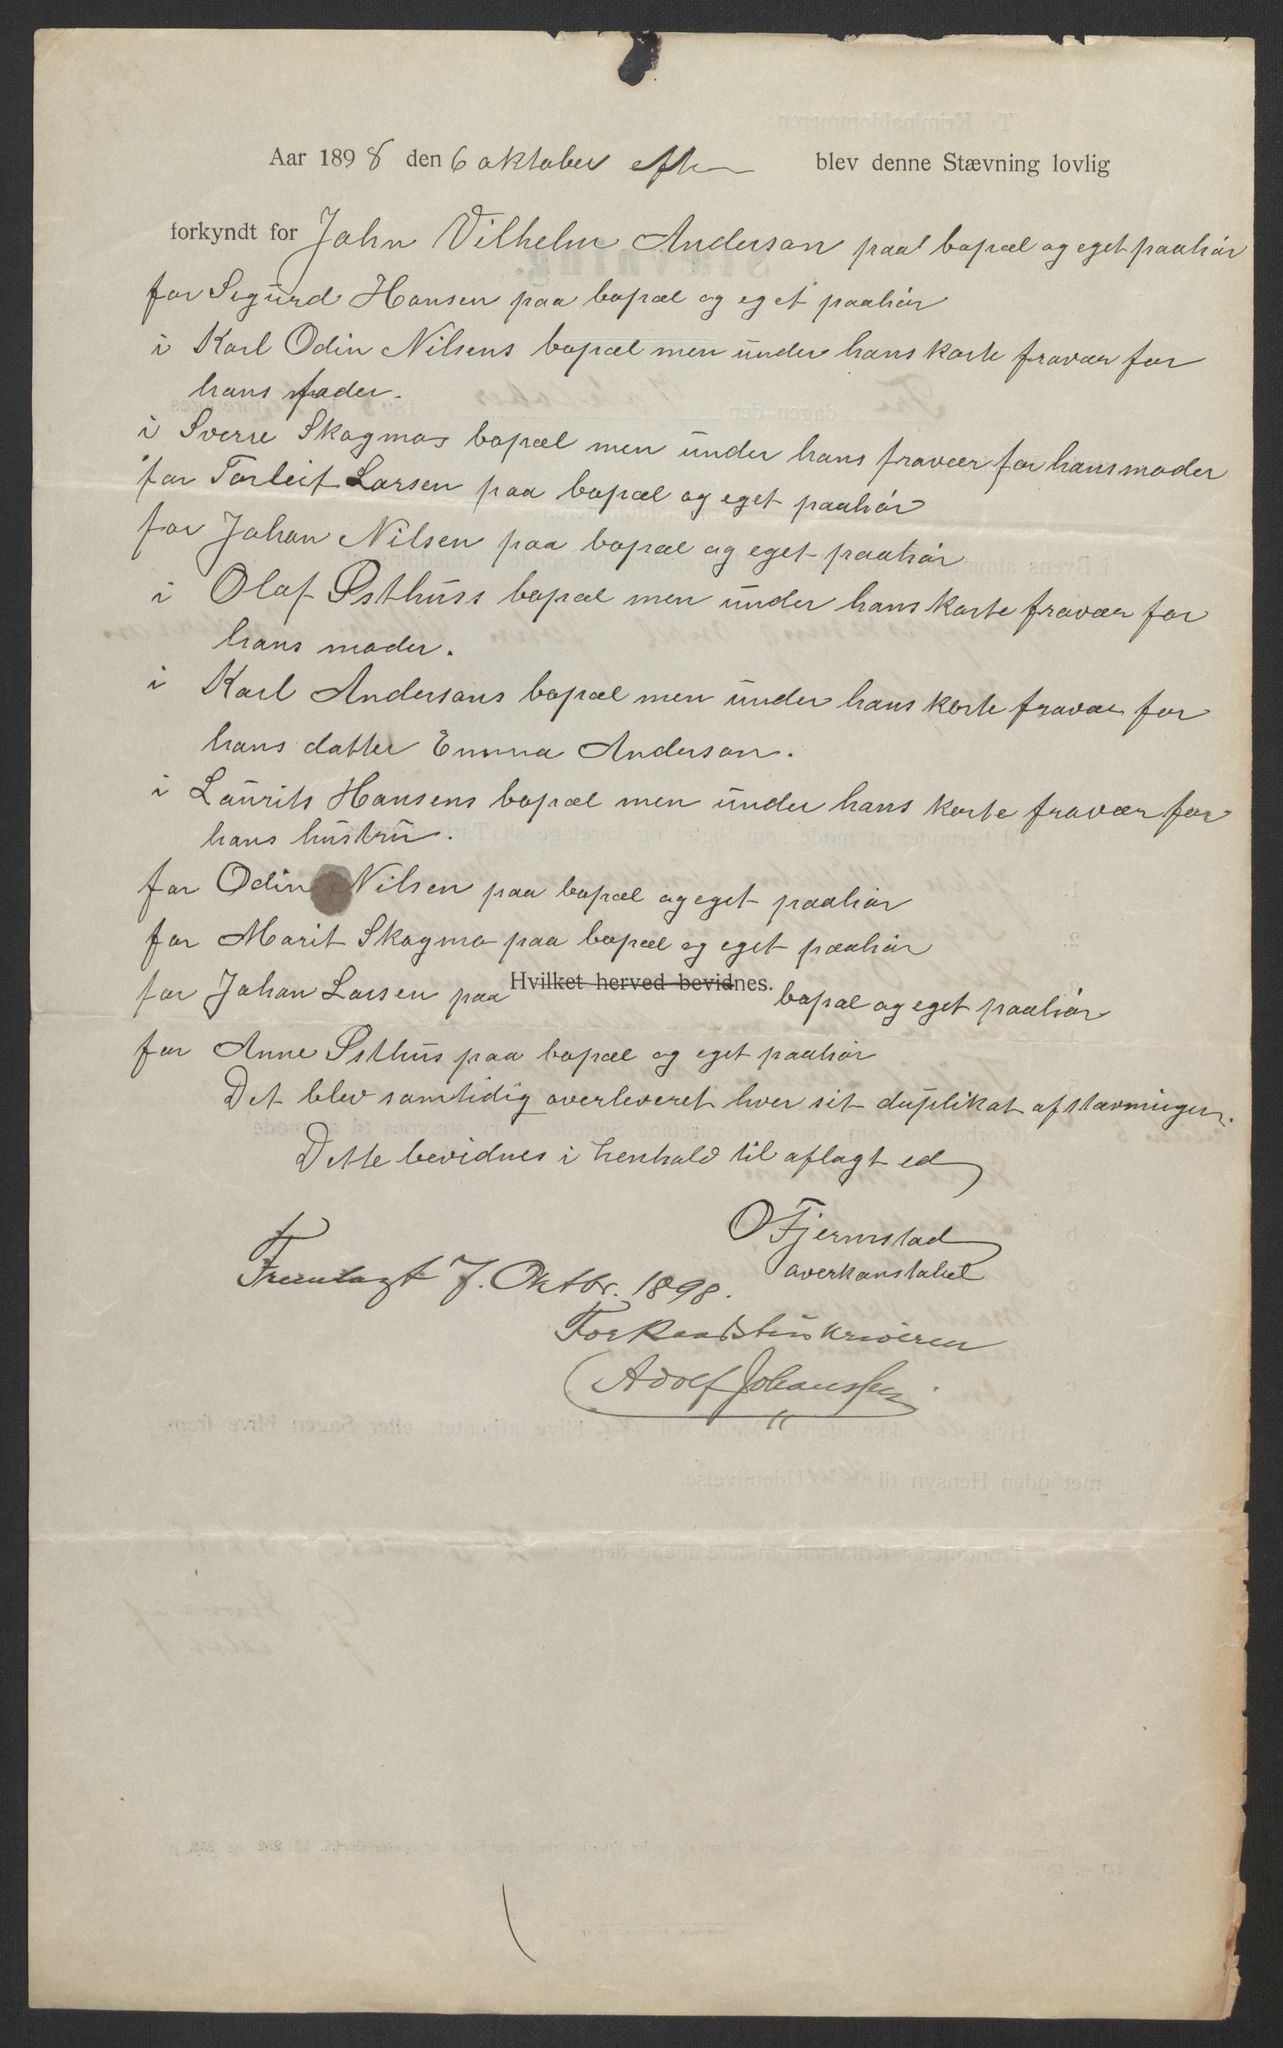 Aar 1898 den 6 oktober efter blev denne Stævning lovlig
forkyndt for John Vilhelm Anderson paa bopæl og eget paahør
for Sigurd Hansen paa bopæl og eget paahør
i Karl Odin Nilsens bopæl men under hans korte fravær for
hans fader.
i Sverre Skogmos bopæl men under hans fravær for hans moder
for Torleif Larsen paa bopæl og eget paahør
for Johan Nilsen paa bopæl og eget paahør
i Olaf Østhuss bopæl men under hans korte fravær for
hans moder.
i Karl Andersons bopæl men under hans korte fravær for
hans datter Emma Anderson.
i Laurits Hansens bopæl men under hans korte fravær for
hans hustru.
for Odin Nilsen paa bopæl og eget paahør
for Marit Skogmo paa bopæl og eget paahør
Hvilket herved bevidnes.
for Johan Larsen paa bopæl og eget paahør
for Anne Østhus paa bopæl og eget paahør
Det blev samtidig overleveret hver sit duplikat af stævningen.
Dette bevidnes i henhold til aflagt ed
O Fjermstad
overkonstabel
Fremlagt 7. Oktbr. 1898.
For Raadstuskriveren
Adolf Johanssen